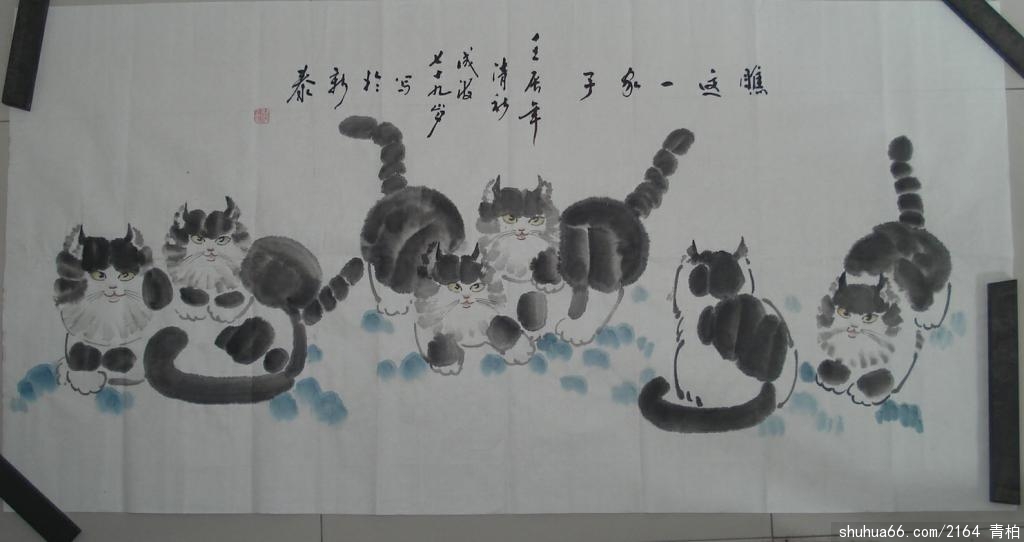 瞧这一家子
壬辰年
清秋
成波
七十九岁
写於新泰
shuhua66.com/2164 青柏